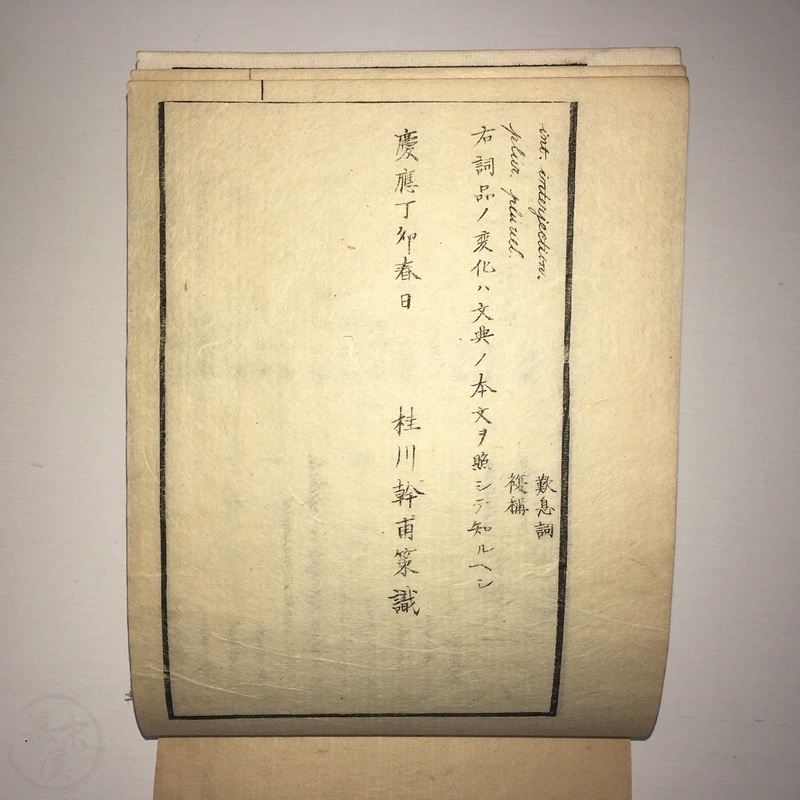 int. interjection. 歎息詞
plur. plurel. 複稱
右詞品ノ変化ハ文典ノ本文ヲ照シテ知ルヘシ
慶應丁卯春日 桂川幹甫策識